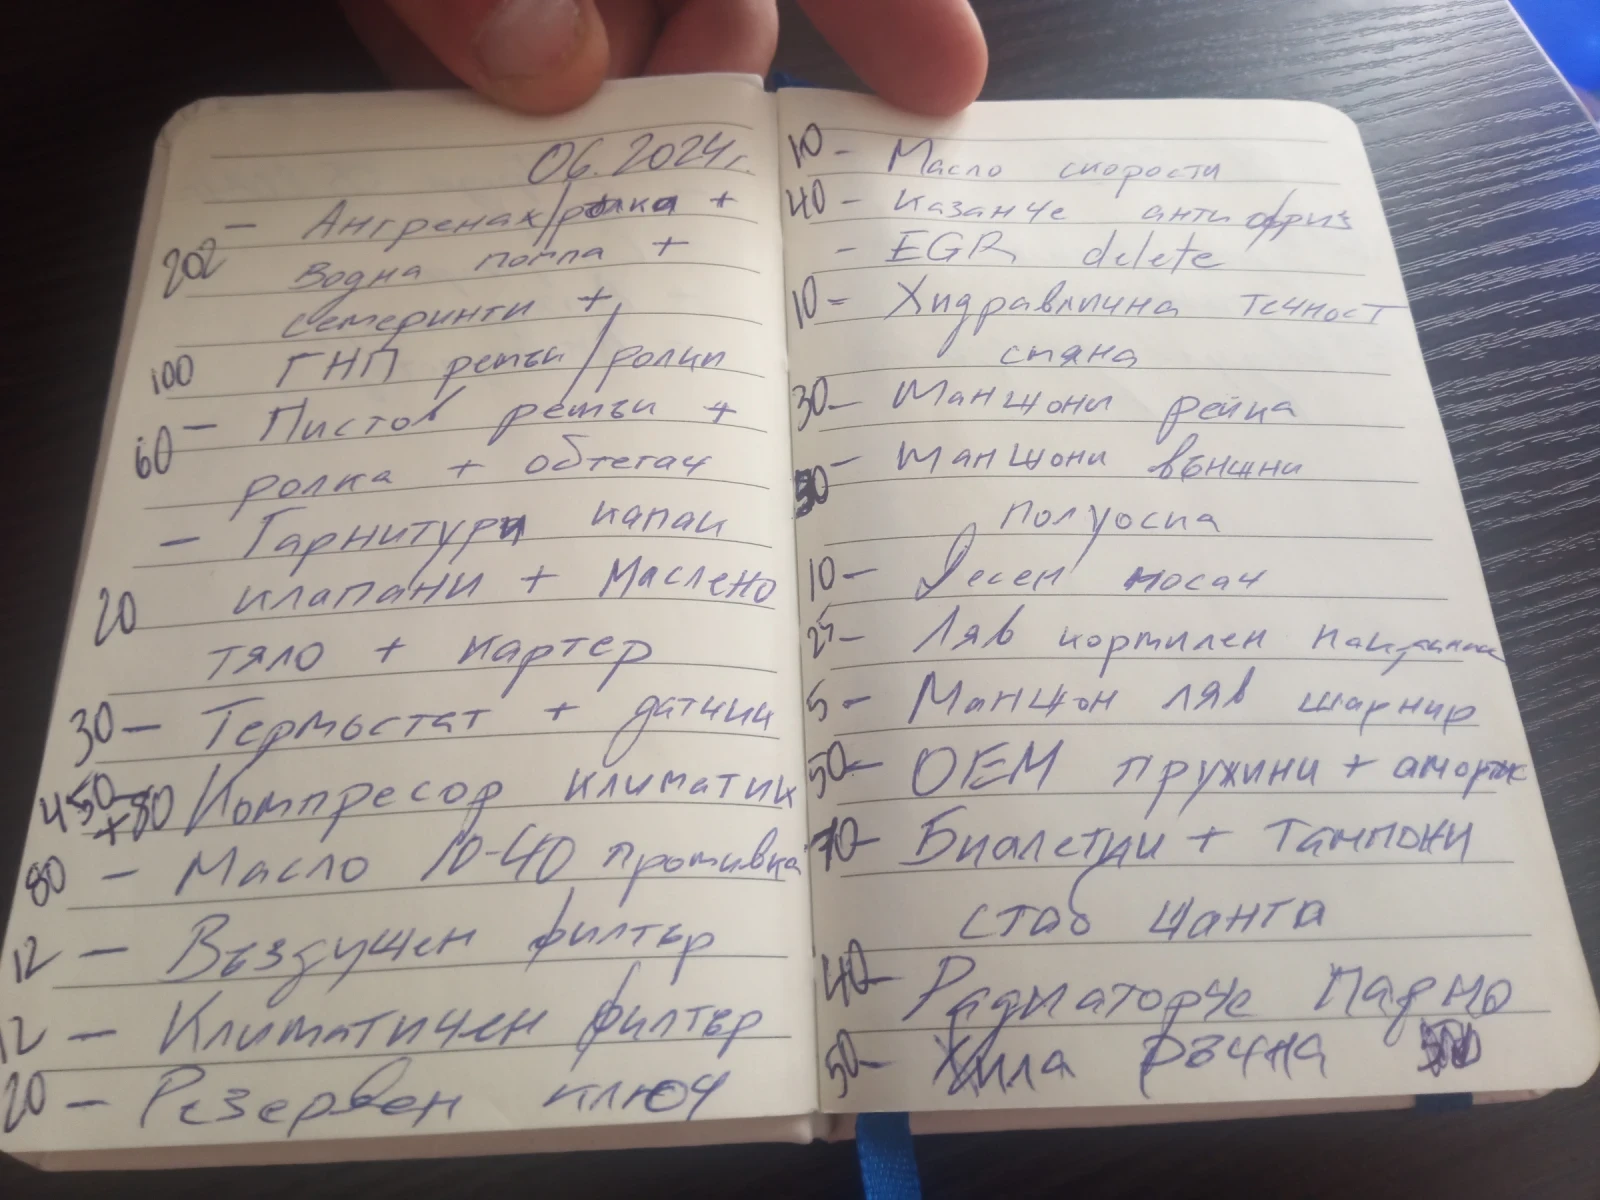 06.2024г.
- Ангренаж/ролка +
202 Водна помпа +
семеринги +
100 ГНП ремък/ролки
60 - Пистов ремък +
ролка + обтегач
- Гарнитури капак
20 клапани + маслено
тяло + картер
30 - Термостат + датчик
450+80 Компресор климатик
80 - Масло 10-40 промивка
12 - Въздушен филтър
12 - Климатичен филтър
20 - Резервен ключ
10 - Масло скорости
40 - Казанче антифриз
- EGR delete
10 - Хидравлична течност
смяна
30 - Маншони рейка
30 - маншони външни
полуоска
10 - Десен носач
25 - Ляв кормилен накрайник
5 - Маншон ляв шарнир
50 - OEM пружини + аморт
70 - Биалетки + Тампони
стаб щанга
40 - Радиаторче Парно
50 - Жила ръчна